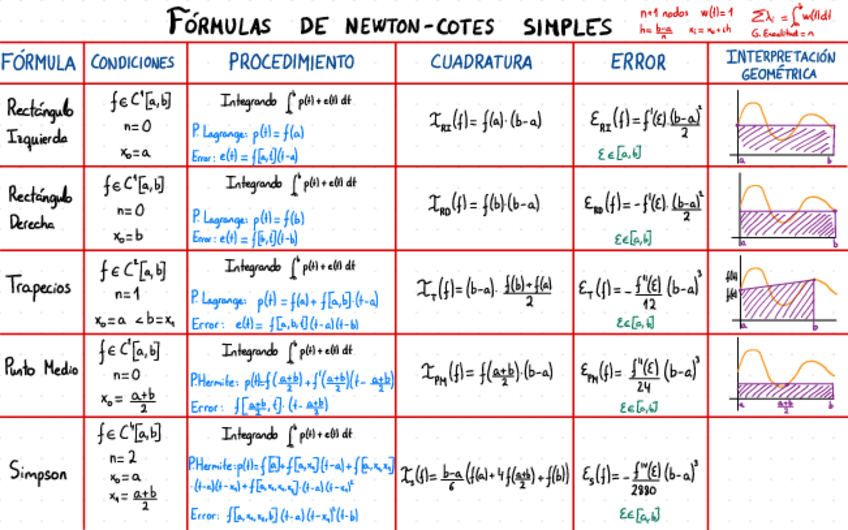 FÓRMULAS DE NEWTON-COTES SIMPLES
n+1 nodos w(t)=1
h= b-a/n xᵢ=x₀+ih
Σλᵢ = ∫ₐᵇ w(t)dt
G. Exactitud = n
FÓRMULA CONDICIONES PROCEDIMIENTO CUADRATURA ERROR INTERPRETACIÓN GEOMÉTRICA
Rectángulo Izquierda
f∈C¹[a,b]
n=0
x₀=a
Integrando ∫ₐᵇ p(t)+e(t) dt
P. Lagrange: p(t)=f(a)
Error: e(t)=f[a,t](t-a)
I_RI(f)=f(a)·(b-a)
Ɛ_RI(f)=f'(ξ)·(b-a)²/2
Ɛ∈[a,b]
a b
Rectángulo Derecha
f∈C¹[a,b]
n=0
x₀=b
Integrando ∫ₐᵇ p(t)+e(t) dt
P. Lagrange: p(t)=f(b)
Error: e(t)=f[b,t](t-b)
I_RD(f)=f(b)·(b-a)
Ɛ_RD(f)=-f'(ξ)·(b-a)²/2
Ɛ∈[a,b]
a b
Trapecios
f∈C²[a,b]
n=1
x₀=a <b=x₁
Integrando ∫ₐᵇ p(t)+e(t) dt
P. Lagrange: p(t)=f(a)+f[a,b]·(t-a)
Error: e(t)=f[a,b,t](t-a)(t-b)
I_T(f)=(b-a)· f(b)+f(a)/2
Ɛ_T(f)=- f''(ξ)/12 (b-a)³
Ɛ∈[a,b]
a b
Punto Medio
n=0
x₀= a+b/2
Integrando ∫ₐᵇ p(t)+e(t) dt
P.Hermite: p(t)=f(a+b/2)+f'(a+b/2)(t- a+b/2)
Error: f[a+b/2,t]·(t- a+b/2)
I_PM(f)=f(a+b/2)·(b-a)
Ɛ_PM(f)= f''(ξ)/24 (b-a)³
Ɛ∈[a,b]
a a+b/2 b
Simpson
f∈C⁴[a,b]
n=2
x₀=a
x₁= a+b/2
Integrando ∫ₐᵇ p(t)+e(t) dt
P.Hermite: p(t)=f[a]+f[a,x₁](t-a)+f[a,x₁,x₁]
Error:
I_S(f)= b-a/6 (f(a)+4f(a+b/2)+f(b))
Ɛ_S(f)=- /2880 (b-a)⁵
Ɛ∈[a,b]